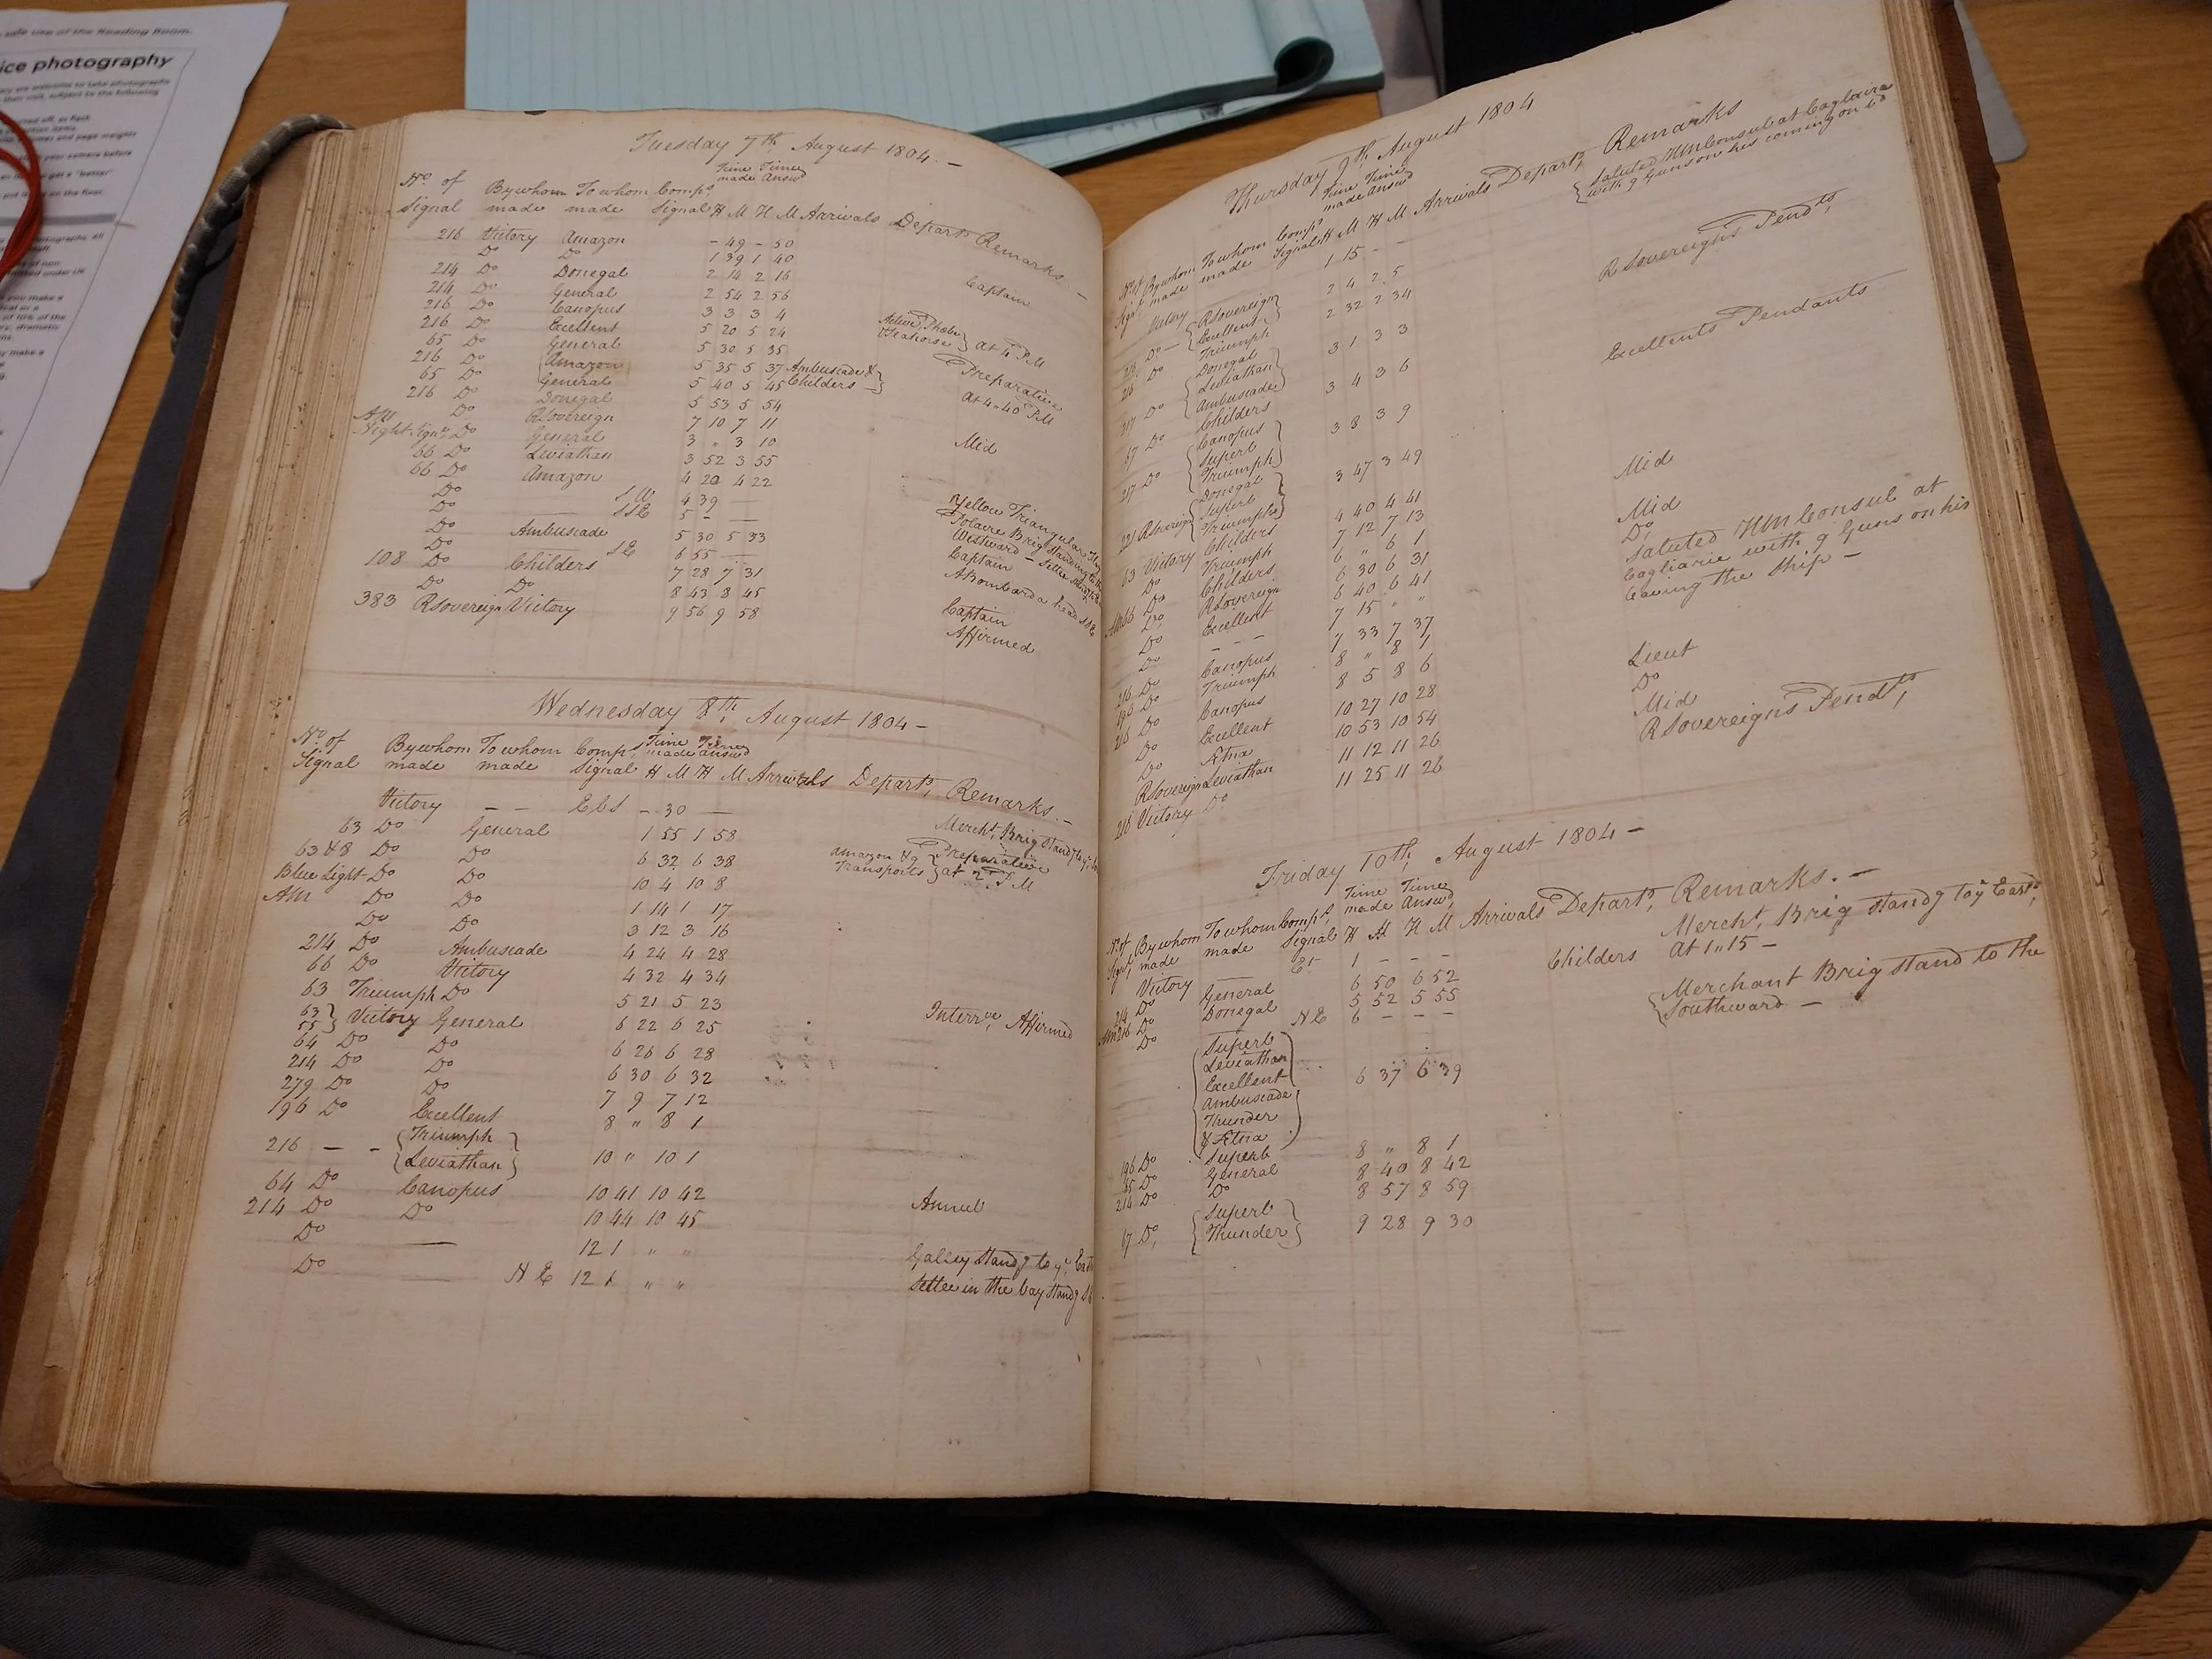 safe use of the Reading Room.
ice photography
Tuesday 7th August 1804.—
No. of By whom To whom Comps Time made Time Answd
Signal made made Signal H M H M Arrivals Depart Remarks —
216 Victory Amazon - 49 - 50
Do Do 1 39 1 40
214 Do Donegal 2 14 2 16 Captain
214 Do General 2 54 2 56
216 Do Canopus 3 3 3 4
216 Do Excellent 5 20 5 24 Active, Phoebe Seahorse } at 4 PM
65 Do General 5 30 5 35 Preparative
216 Do Amazon 5 35 5 37 Ambuscade & Childers } at 4..40 PM
65 Do General 5 40 5 45
216 Do Donegal 5 53 5 54
AM Do RSovereign 7 10 7 11 Mid
Night Signl Do General 3 " 3 10
66 Do Leviathan 3 52 3 55
66 Do Amazon 4 20 4 22
Do — SW 4 39 —
Do — SSE 5 - — Polacre Brig standing to the Westward
Do Ambuscade 5 30 5 33 Captain
Do SE 6 55 — A Bombarda head SE
108 Do Childers 7 28 7 31
Do Do 8 43 8 45 Captain
383 RSovereign Victory 9 56 9 58 Affirmed
Wednesday 8th, August 1804 —
No. of By whom To whom Comps Time made Time answd
Signal made made Signal H M H M Arrivals Depart, Remarks.—
Victory — — EbS - 30 — Mercht, Brig stand
63 Do General 1 55 1 58 Amazon & 9 Transports } Preparative at 2 PM
63 & 8 Do Do 6 32 6 38
Blue Light Do Do 10 4 10 8
AM Do Do 1 14 1 17
Do Do 3 12 3 16
214 Do Ambuscade 4 24 4 28
66 Do Victory 4 32 4 34
63 Triumph Do 5 21 5 23 Affirmed
63 55 } Victory General 6 22 6 25
64 Do Do 6 26 6 28
214 Do Do 6 30 6 32
279 Do Do 7 9 7 12
196 Do Excellent 8 " 8 1
216 — - { Triumph Leviathan } 10 " 10 1
64 Do Canopus 10 41 10 42 Annul
214 Do Do 10 44 10 45
Do — 12 1 " " Galley standg to ye East
Do — N E 12 1 " " Settee in the bay standg
Thursday 9th, August 1804
No. of By whom To whom Comps Time made Time answd
Signl made made Signal H M H M Arrivals Depart, Remarks
Victory 1 15 - - { Saluted HM Consul at Cagliaria with 9 Guns on his coming on bd
216 Do — { RSovereign Excellent } 2 4 2 5 RSovereigns Pendts
216 Do Triumph 2 32 2 34
217 Do { Donegal Leviathan Ambuscade } 3 1 3 3 Excellents Pendants
67 Do Childers 3 4 3 6
217 Do { Canopus Superb Triumph } 3 8 3 9
221 RSovereign { Donegal Superb Triumph } 3 47 3 49
63 Victory Childers 4 40 4 41 Mid
Do Triumph 7 12 7 13
AM 66 Do Childers 6 " 6 1 Mid
Do RSovereign 6 30 6 31 Do
Do Excellent 6 40 6 41
Do - - 7 15 " " Saluted HM Consul at Cagliarie with 9 Guns on his leaving the Ship —
216 Do Canopus 7 33 7 37
196 Do Triumph 8 " 8 1
216 Do Canopus 8 5 8 6 Lieut
Do Excellent 10 27 10 28 Do
Do Etna 10 53 10 54 Mid
RSovereign Leviathan 11 12 11 26 RSovereigns Pendts,
216 Victory Do 11 25 11 26
Friday 10th, August 1804 —
No. of By whom To whom Comps, Time made Time Answd,
Signl, made made Signal H M H M Arrivals Depart, Remarks.—
Victory 1 - - - Mercht, Brig standg to ye East,
214 Do General 6 50 6 52 Childers At 1..15 —
AM 216 Do Donegal 5 52 5 55
Do N E 6 - - - { Merchant Brig stand to the Southward —
{ Superb
Leviathan
Excellent 6 37 6 39
Ambuscade
Thunder
& Etna }
196 Do Superb 8 " 8 1
65 Do General 8 40 8 42
214 Do Do 8 57 8 59
67 Do, { Superb Thunder } 9 28 9 30